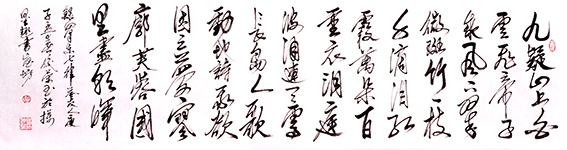 九疑山上白
雲飛帝子
乘风下翠
微斑竹一枝
千滴泪红
霞萬朵百
重衣洞庭
波涌連天雪
长岛人歌
動地詩我欲
因之夢寥
廓芙蓉國
里盡朝暉
東七律答友人